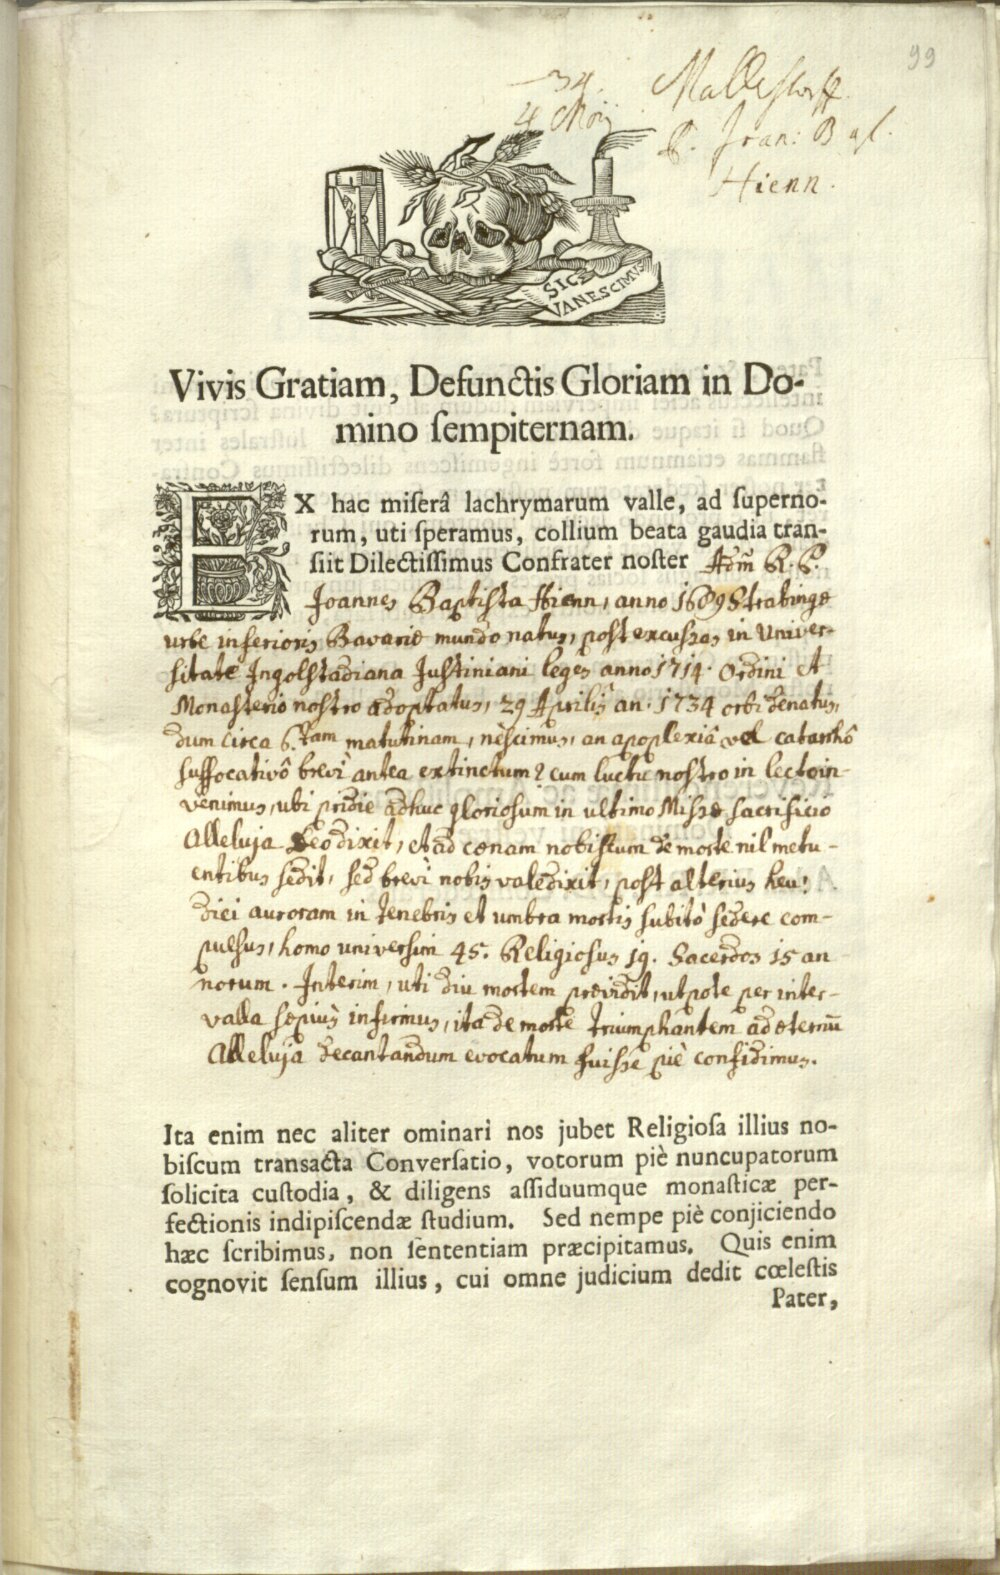 99
34.
4 Maij
Mallestorff.
P. Joan: Bapt.
Hienn.
SIC
VANESCIMUS
Vivis Gratiam, Defunctis Gloriam in Do-
mino ſempiternam.
EX hac miſerâ lachrymarum valle, ad ſuperno-
rum, uti ſperamus, collium beata gaudia tran-
ſiit Dilectiſſimus Confrater noſter Adm̃ R. P.
Joannes Baptista Hienn, anno 1689 Strabingæ
urbe inferioris Bavariæ mundo natus, post excussas in Univer-
sitate Ingolstadiana Justiniani leges anno 1714. Ordini et
Monasterio nostro adoptatus, 29 Aprilis an. 1734 orbi denatus,
dum circa 6.tam matutinam, nescimus, an apoplexiâ vel catarrhô
suffocativô brevì antea extinctum? cum luctu nostro in lecto in-
venimus, ubi pridie adhuc gloriosum in ultimo Missæ sacrificio
Alleluja Deo dixit, et ad cœnam nobiscum de morte nil metu-
entibus sedit, sed brevì nobis valedixit, post alterius heu!
diei auroram in tenebris et umbra mortis subitò sedere com-
pulsus, homo universim 45. Religiosus 19. Sacerdos 15 an
norum. Interim, uti diu mortem prævidit, utpote per inter-
valla sæpiùs infirmus, ita de morte triumphantem ad æternũ
Alleluja decantandum evocatum fuisse piè confidimus.
Ita enim nec aliter ominari nos jubet Religioſa illius no-
biſcum transacta Converſatio, votorum piè nuncupatorum
ſolicita cuſtodia, & diligens aſſiduumque monaſticæ per-
fectionis indipiſcendæ ſtudium. Sed nempe piè conjiciendo
hæc ſcribimus, non ſententiam præcipitamus. Quis enim
cognovit ſenſum illius, cui omne judicium dedit cœleſtis
Pater,